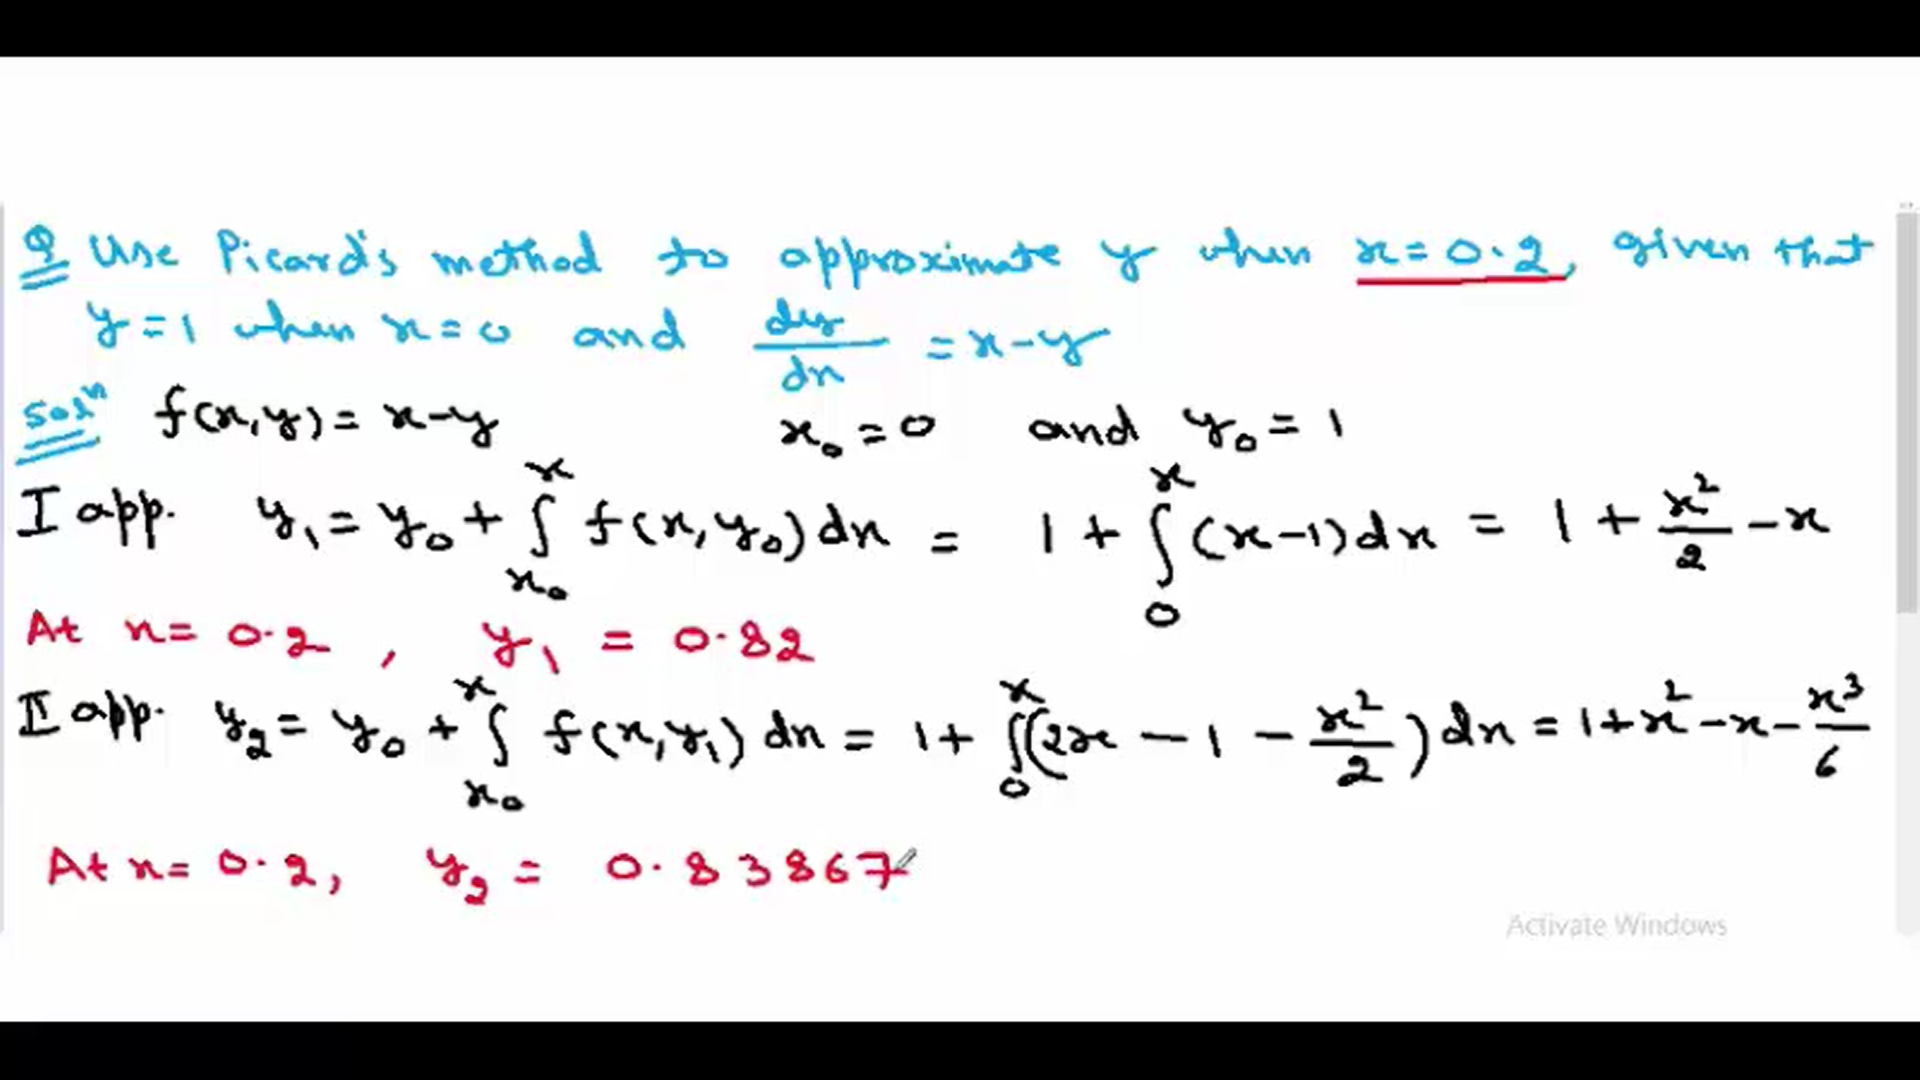 Q Use Picard's method to approximate y when x=0.2, given that
y=1 when x=0 and dy/dx = x-y
Solⁿ f(x,y) = x-y x₀=0 and y₀=1
I app. y₁ = y₀ + ∫ₓ₀ˣ f(x,y₀)dx = 1 + ∫₀ˣ (x-1)dx = 1 + x²/2 - x
At x=0.2, y₁ = 0.82
II app. y₂ = y₀ + ∫ₓ₀ˣ f(x,y₁)dx = 1 + ∫₀ˣ (2x - 1 - x²/2)dx = 1+x²-x-x³/6
At x=0.2, y₂ = 0.83867
Activate Windows